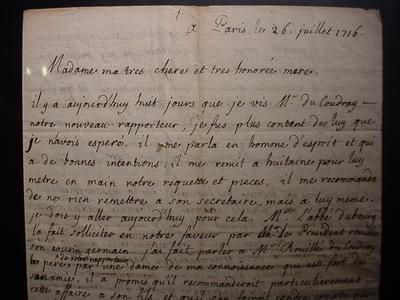 a Paris le 26. juillet 1716.
Madame ma tres chere et tres honorée mere.
il y a aujourd'huy huit jours que je vis Mr. du Coudray
notre nouveau rapporteur, je fus plus content de luy que
je n'avois esperé. il me parla en homme d'esprit et qui
a de bonnes intentions. il me remit a huitaine pour luy
metre en main notre requette et pieces, il me recommanda
de ne rien remettre a son secretaire, mais a luy meme.
je dois y aller aujourd'huy pour cela. Mr. l'abbé Dubourg
la fait solliciter en notre faveur par le President rouillé
son cousin germain. j'ai fait parler a Mr. Rouillé du Coudray
de notre rapporteur
le pere par une dame de ma connoissance qui est fort de
son amie. il a promis qu'il recommanderoit particulierement
cette affaire a son fils et qu'il